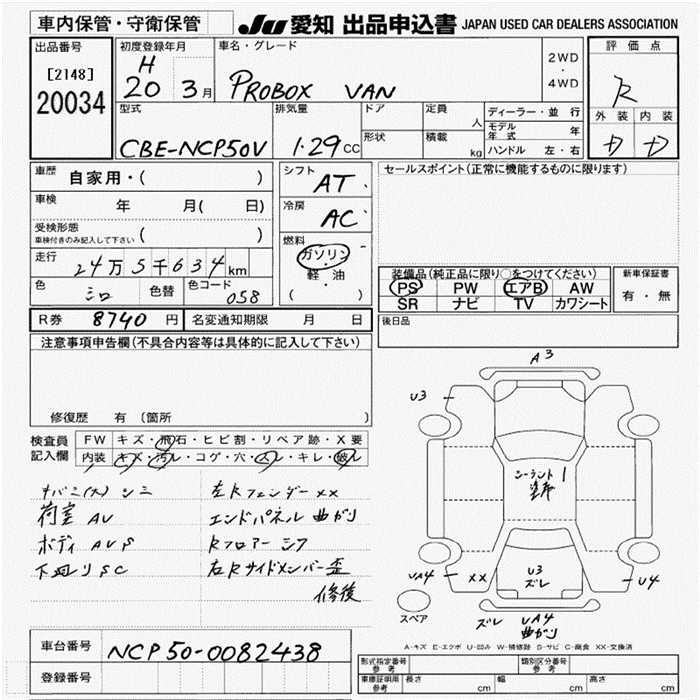 車内保管・守衛保管 JU 愛知 出品申込書 JAPAN USED CAR DEALERS ASSOCIATION
出品番号 初度登録年月 車名・グレード 評価点
[2148] H 2WD
20034 20 3月 PROBOX VAN ・ 4WD R
型式 排気量 ドア 定員 人 ディーラー・並行 外装 内装
CBE-NCP50V 1.29cc 形状 積載 kg モデル年式 年 D D
ハンドル 左・右
車歴 自家用・( ) シフト AT セールスポイント(正常に機能するものに限ります)
車検 年 月( 日) 冷房 AC
受検形態 ( )
車検付きのみ記入して下さい
燃料
走行 24万5千634km ガソリン・軽油 ( )
装備品(純正品に限り○をつけてください) 新車保証書
色 シロ 色替 色コード 058 PS PW エアB AW 有・無
SR ナビ TV カワシート
R券 8740円 名変通知期限 月 日 後日品
注意事項申告欄(不具合内容等は具体的に記入して下さい)
修復歴 有 (箇所 )
検査員記入欄 FW キズ・飛石・ヒビ割・リペア跡・X要
内装 キズ・汚レ・コゲ・穴・スレ・キレ・破レ
A3
U3
シーラント 1
シミ 左Rフェンダー XX
荷室 AU エンドパネル 曲がり
ボディ AUS Rフロアー シワ
下廻り SC 右Rサイドメンバー歪
修復
U3
ズレ
UA4 XX U4
スペア ズレ UA4
曲がり
A-キズ E-エクボ U-凹み W-補修跡 S-サビ C-腐食 XX-交換済
車台番号 NCP50-0082438
登録番号
型式指定番号 参考 類別区分番号 参考
車庫証明用 参考 長さ cm 幅 cm 高さ cm